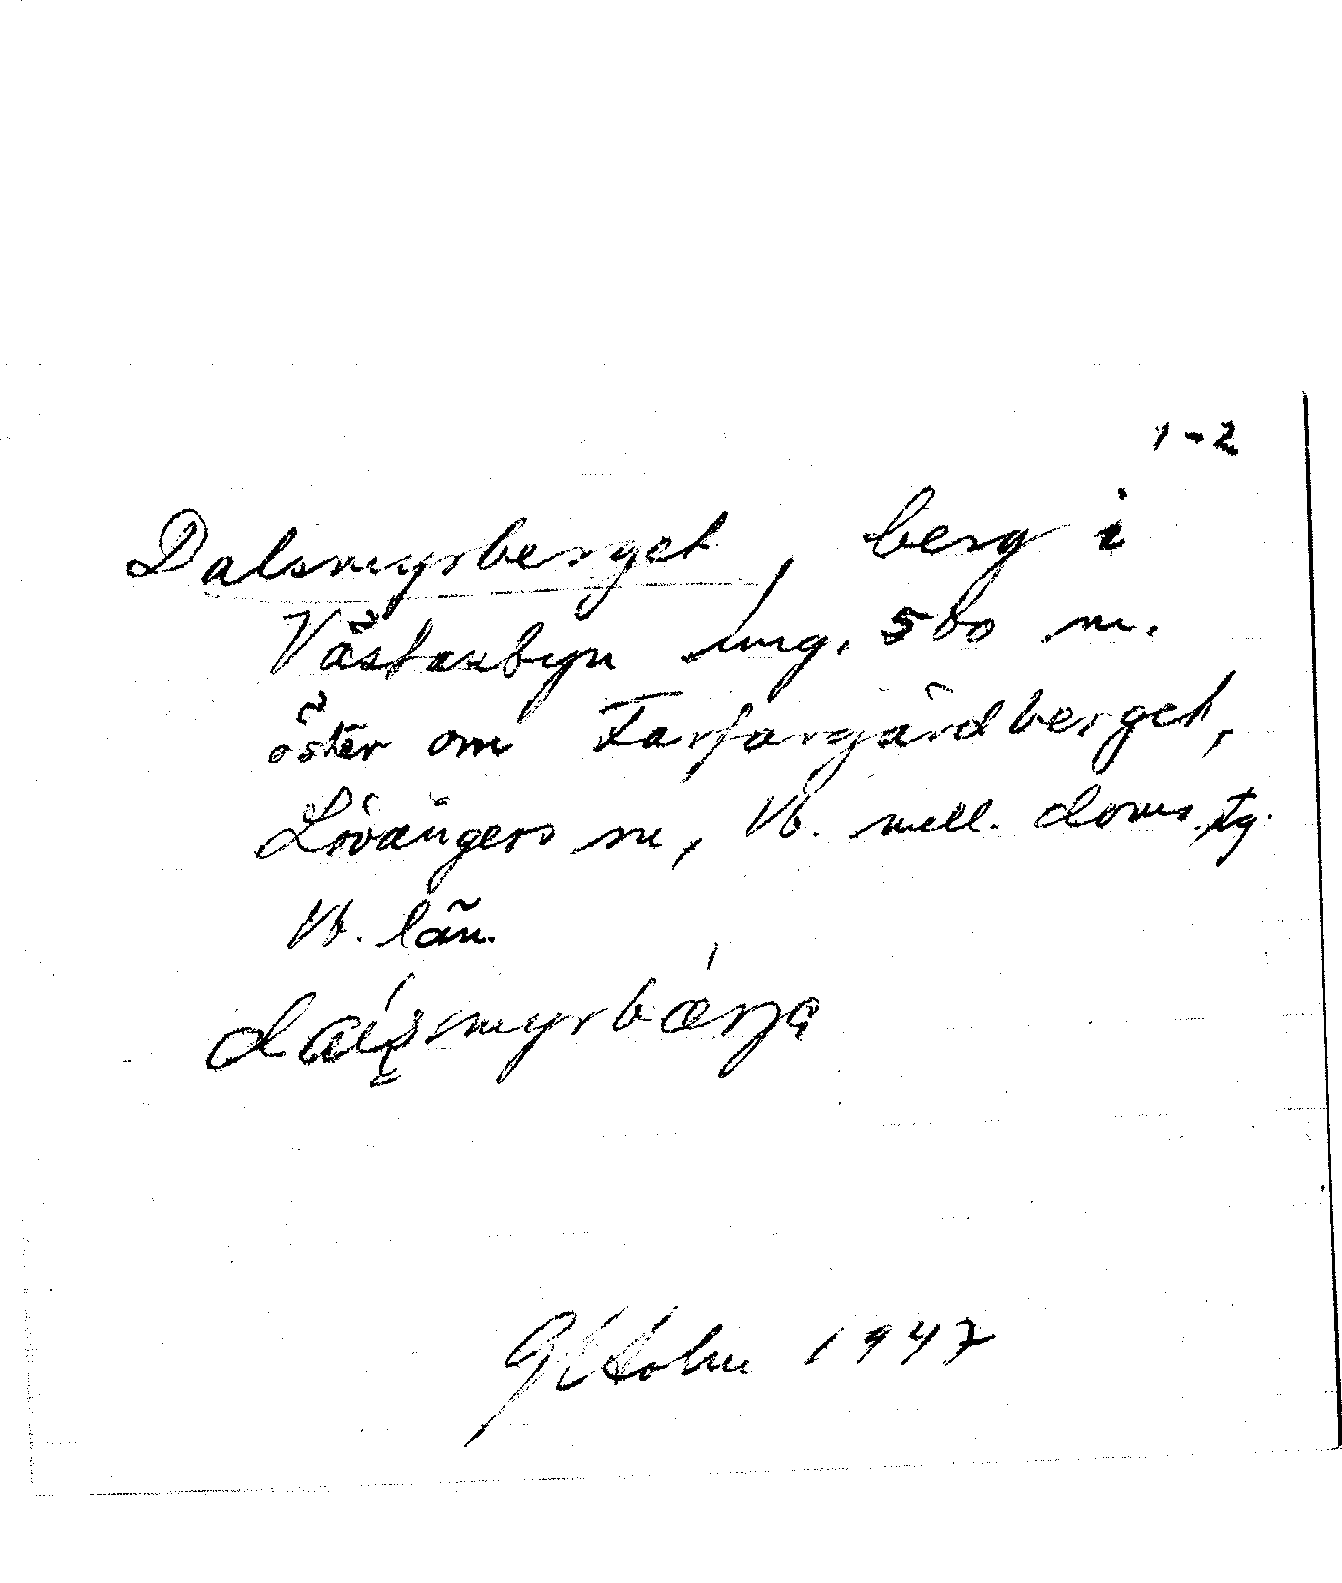 1-2
Dalsmyrberget, berg i
Västanbyn ung. 500 m.
öster om Farfargårdberget,
Lövångers sn, Vb. mell. doms.tg.
Vb. län.
G Holm 1947